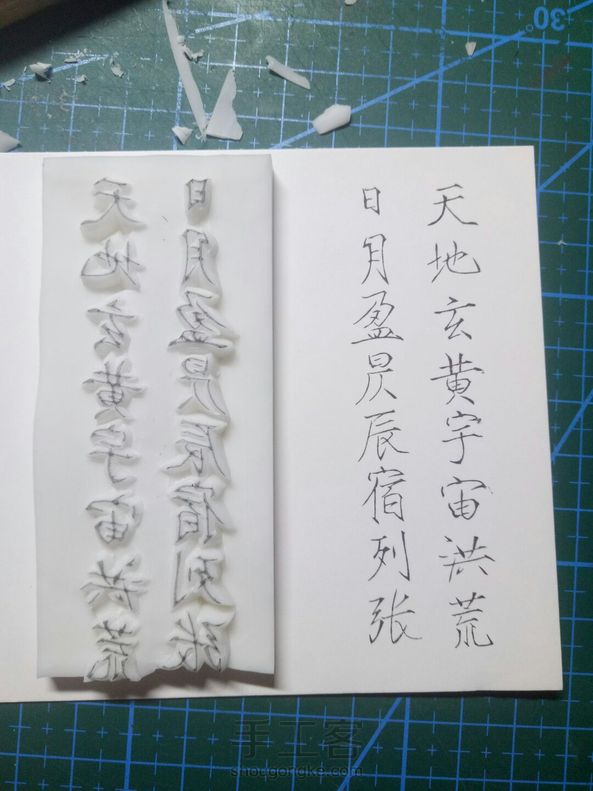 天地玄黄宇宙洪荒
日月盈昃辰宿列张
天地玄黄宇宙洪荒
日月盈昃辰宿列张
30°
手工客
shougongke.com